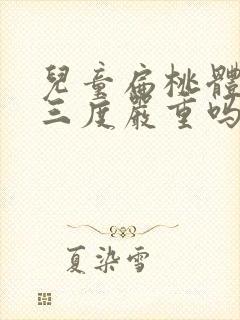 兒童扁桃體
三度嚴重嗎
夏染雪